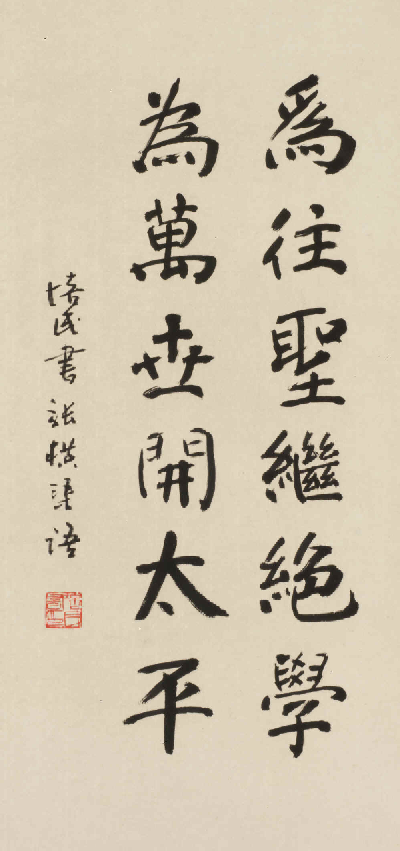 爲往聖繼絕學
為萬世開太平
培民書張橫渠語